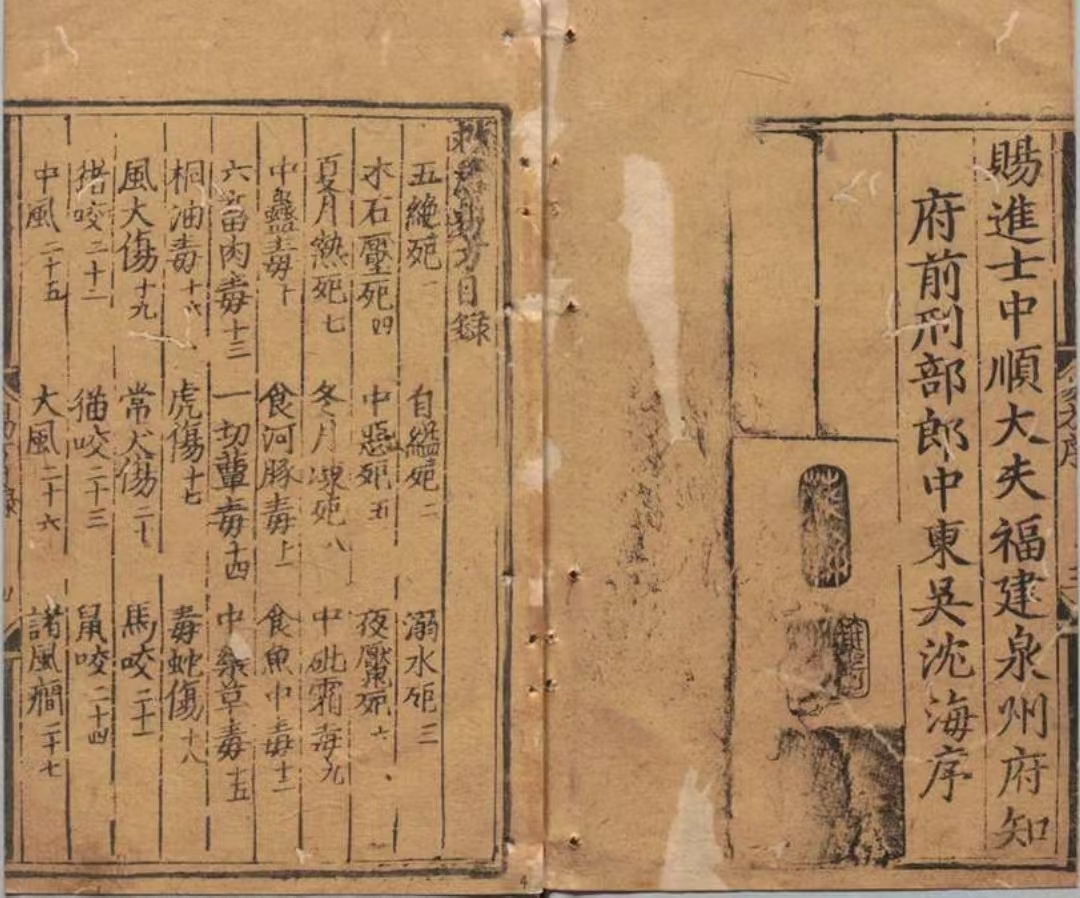 賜進士中順大夫福建泉州府知
府前刑部郎中東吳沈海序
目錄
五絶死一 自縊死二 溺水死三
木石壓死四 中惡死五 夜魘死六
夏月熱死七 冬月凍死八 中砒霜毒九
中蠱毒十 食河豚毒十一 食魚中毒十二
六畜肉毒十三 一切蕈毒十四 中藥草毒十五
桐油毒十六 虎傷十七 毒蛇傷十八
風犬傷十九 常犬傷二十 馬咬二十一
猪咬二十二 猫咬二十三 鼠咬二十四
中風二十五 大風二十六 諸風癇二十七